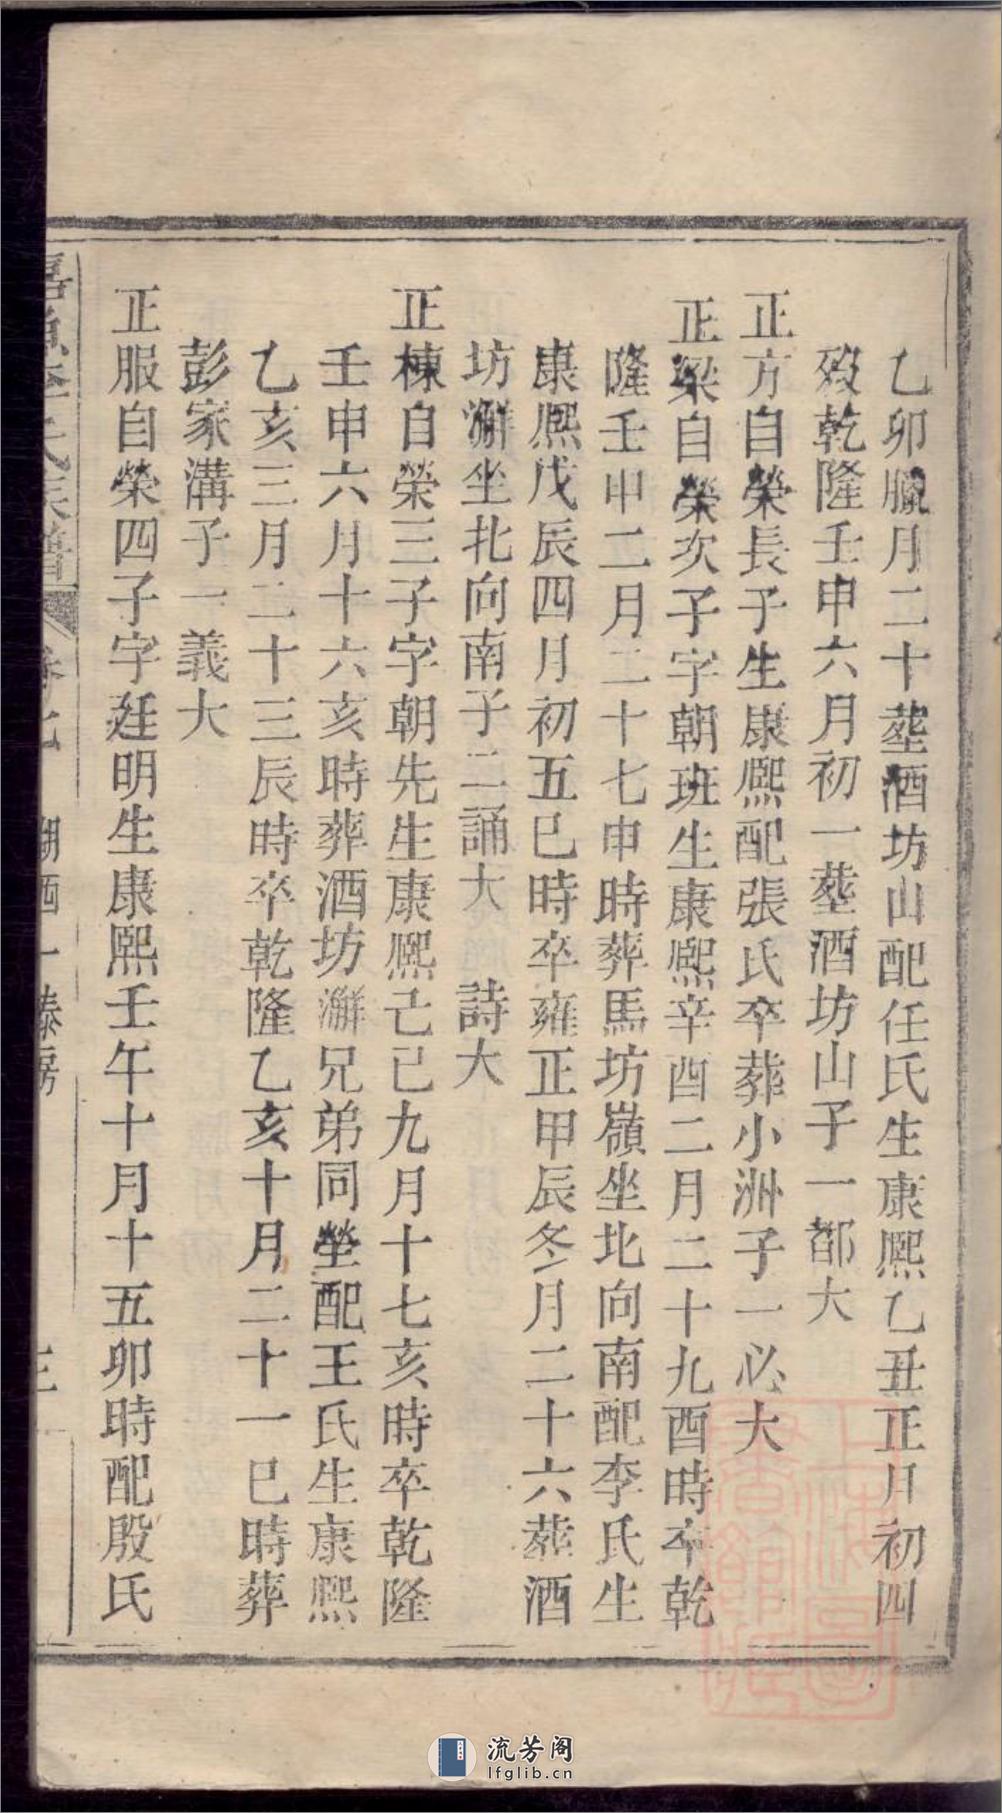 乙卯臘月二十塟酒坊山配任氏生康熙乙丑正月初四
歿乾隆壬申六月初一塟酒坊山子一都大
正方自榮長子生康熙配張氏卒葬小洲子一必大
正梁自榮次子字朝班生康熙辛酉二月二十九酉時卒乾
隆壬申二月二十七申時葬馬坊嶺坐北向南配李氏生
康熙戊辰四月初五巳時卒雍正甲辰冬月二十六葬酒
坊澥坐北向南子二誦大 詩大
正棟自榮三子字朝先生康熙己巳九月十七亥時卒乾隆
壬申六月十六亥時葬酒坊澥兄弟同塋配王氏生康熙
乙亥三月二十三辰時卒乾隆乙亥十月二十一巳時葬
彭家溝子一義大
正服自榮四子字廷明生康熙壬午十月十五卯時配殷氏
氏族譜 卷七
流芳阁
lfglib.cn